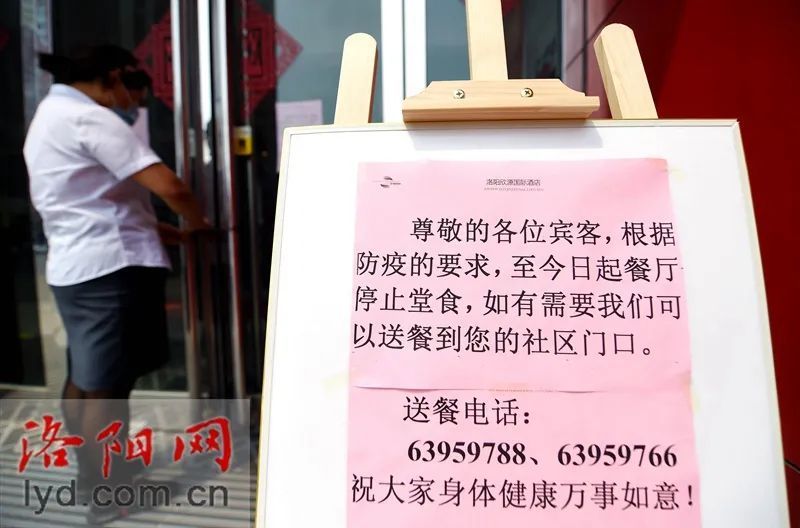 洛阳欣源国际酒店
尊敬的各位宾客,根据
防疫的要求,至今日起餐厅
停止堂食,如有需要我们可
以送餐到您的社区门口。
送餐电话:
63959788、63959766
祝大家身体健康万事如意!
洛阳网
lyd.com.cn